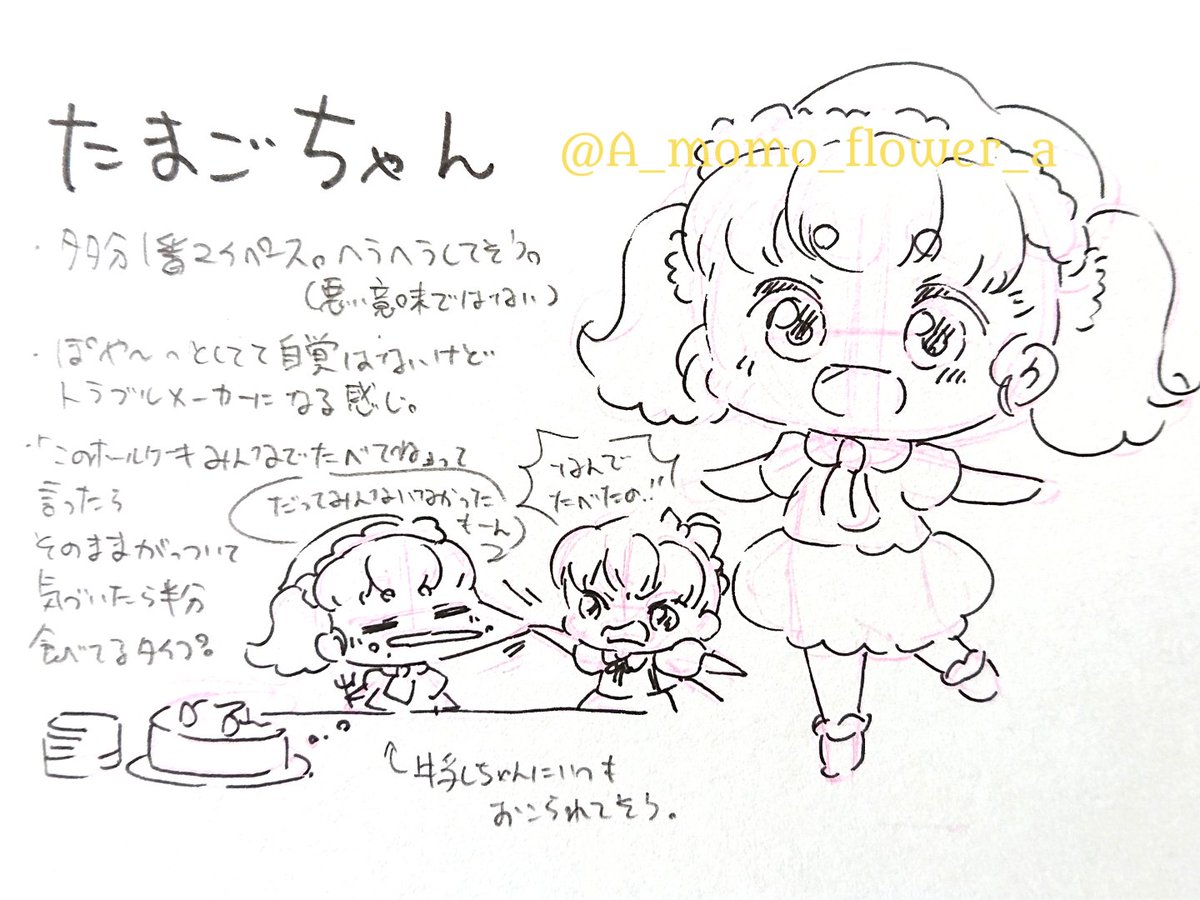 たまごちゃん
@A_momo_flower_a
・多分1番マイペース。ヘラヘラしてそう。
(悪い意味ではない)
・ぽや〜っとしてて自覚はないけど
トラブルメーカーになる感じ。
・「このホールケーキみんなでたべてね」って
言ったら
そのままがっついて
気づいたら半分
食べてるタイプ。
だってみんないなかった
もーん
なんで
たべたの!!
↑牛乳ちゃんにいつも
おこられてそう。